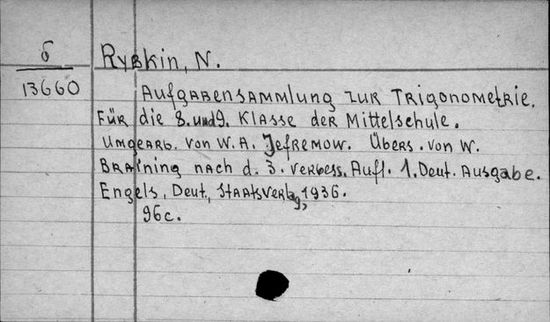 б
13660
Rybkin, N.
Aufgabensammlung zur Trigonometrie.
Für die 8. und 9. Klasse der Mittelschule.
Umgearb. von W. A. Jefremow. Übers. von W.
Braining nach d. 3. verbess. Aufl. 1. Deut. Ausgabe.
Engels, Deut. Staatsverlag, 1936.
96c.